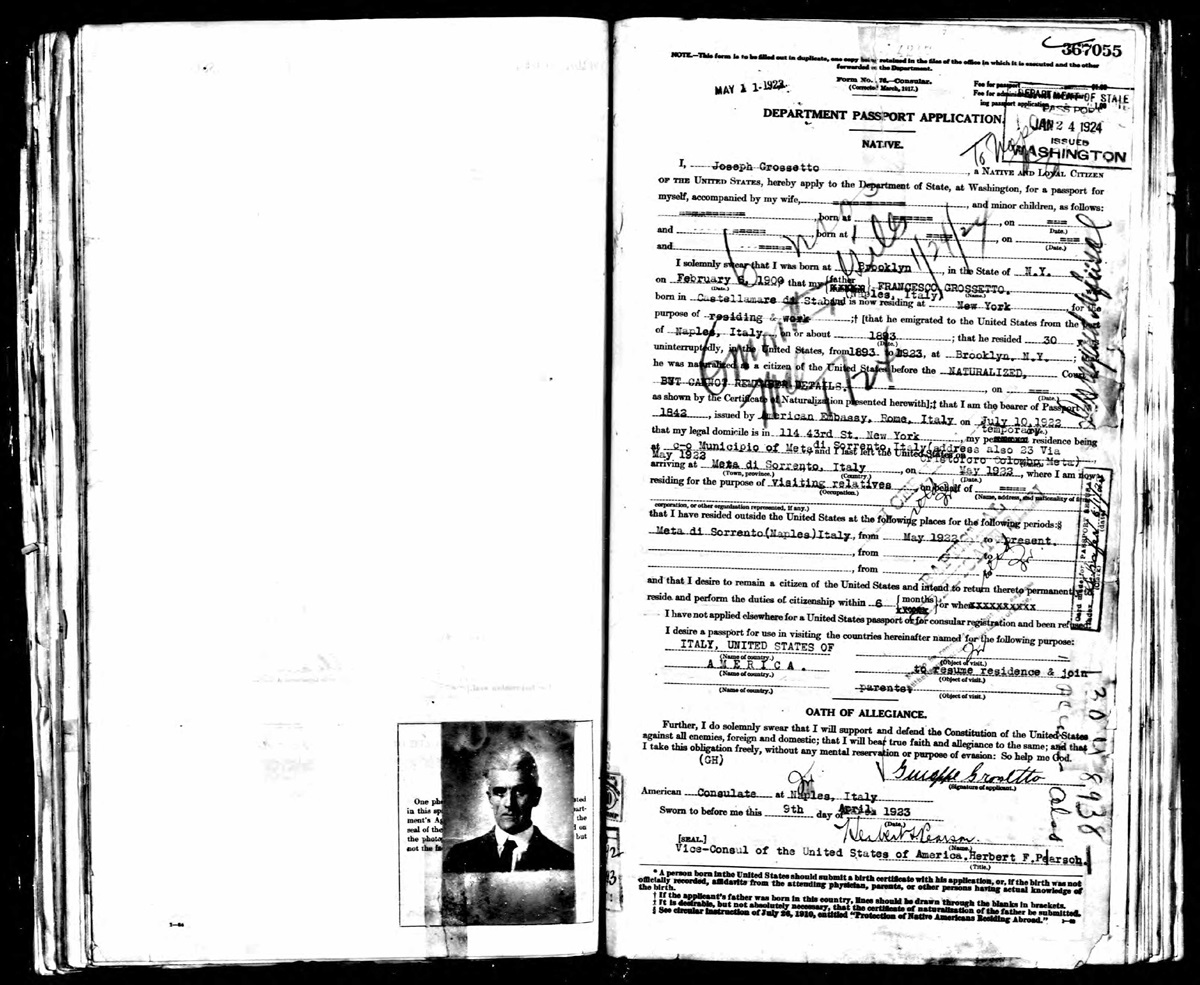 One pho
in this spa
ment's Ag
seal of the
the photo
not the fa
367055
NOTE.—This form is to be filled out in duplicate, one copy being retained in the files of the office in which it is executed and the other
forwarded to the Department.
Form No. 76—Consular.
(Corrected March, 1917.)
MAY 11 1923
Fee for passport $1.00
DEPARTMENT OF STATE
PASSPORT
JAN 24 1924
ISSUED
WASHINGTON
DEPARTMENT PASSPORT APPLICATION.
NATIVE.
I, Joseph Grossetto, a NATIVE AND LOYAL CITIZEN
OF THE UNITED STATES, hereby apply to the Department of State, at Washington, for a passport for
myself, accompanied by my wife, , and minor children, as follows:
, born at , on
(Date.)
and , born at , on
(Date.)
and
1/24/24
I solemnly swear that I was born at Brooklyn, in the State of N.Y.
on February 8, 1900 that my father FRANCESCO GROSSETTO.
(Date.) (Name.)
born in Castellamare di Stabia (Naples, Italy) and is now residing at New York, for the
purpose of residing & work ;† [that he emigrated to the United States from the
of Naples, Italy on or about 1893 ; that he resided 30
(Date.)
uninterruptedly, in the United States, from 1893 to 1923, at Brooklyn. N.Y. ;
he was naturalized as a citizen of the United States before the NATURALIZED, Court
BUT CANNOT REMEMBER DETAILS. on
(Date.)
as shown by the Certificate of Naturalization presented herewith];‡ that I am the bearer of Passport
1842, issued by American Embassy, Rome, Italy on July 10, 1922
that my legal domicile is in 114 43rd St. New York, my temporary residence being
at c-o Municipio of Meta di Sorrento, Italy (address also 23 Via
Cristoforo Colombo, Meta)
May 1922 and I last left the United States on
arriving at Meta di Sorrento, Italy, on May 1922, where I am now
(Town, province.) (Country.) (Date.)
residing for the purpose of visiting relatives on behalf of
(Occupation.) (Name, address, and nationality of firm,
corporation, or other organization represented, if any.)
that I have resided outside the United States at the following places for the following periods:§
Meta di Sorrento (Naples) Italy, from May 1922 to present.
, from to
, from to
and that I desire to remain a citizen of the United States and intend to return thereto permanently to
reside and perform the duties of citizenship within 6 months or when xxxxxxxxxx
I have not applied elsewhere for a United States passport or for consular registration and been refused.
I desire a passport for use in visiting the countries hereinafter named for the following purpose:
ITALY, UNITED STATES OF
(Name of country.) (Object of visit.)
AMERICA. to resume residence & join
(Name of country.) (Object of visit.)
parents.
(Name of country.) (Object of visit.)
OATH OF ALLEGIANCE.
Further, I do solemnly swear that I will support and defend the Constitution of the United States
against all enemies, foreign and domestic; that I will bear true faith and allegiance to the same; and that
I take this obligation freely, without any mental reservation or purpose of evasion: So help me God.
(GH)
Giuseppe Grosetto
(Signature of applicant.)
American Consulate at Naples, Italy
Sworn to before me this 9th day of April 1923
(Date.)
Herbert F. Pearson.
[SEAL.] (Name.)
Vice-Consul of the United States of America. Herbert F. Pearson.
(Title.)
* A person born in the United States should submit a birth certificate with his application, or, if the birth was not
officially recorded, affidavits from the attending physician, parents, or other persons having actual knowledge of
the birth.
† If the applicant's father was born in this country, lines should be drawn through the blanks in brackets.
‡ It is desirable, but not absolutely necessary, that the certificate of naturalization of the father be submitted.
§ See circular instruction of July 26, 1910, entitled "Protection of Native Americans Residing Abroad."